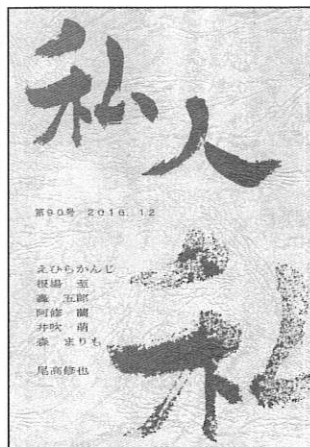 私人
第90号 2016.12
えひらかんじ
根場 至
森 五郎
阿修 蘭
井吹 萌
森 まりも
尾高修也
私